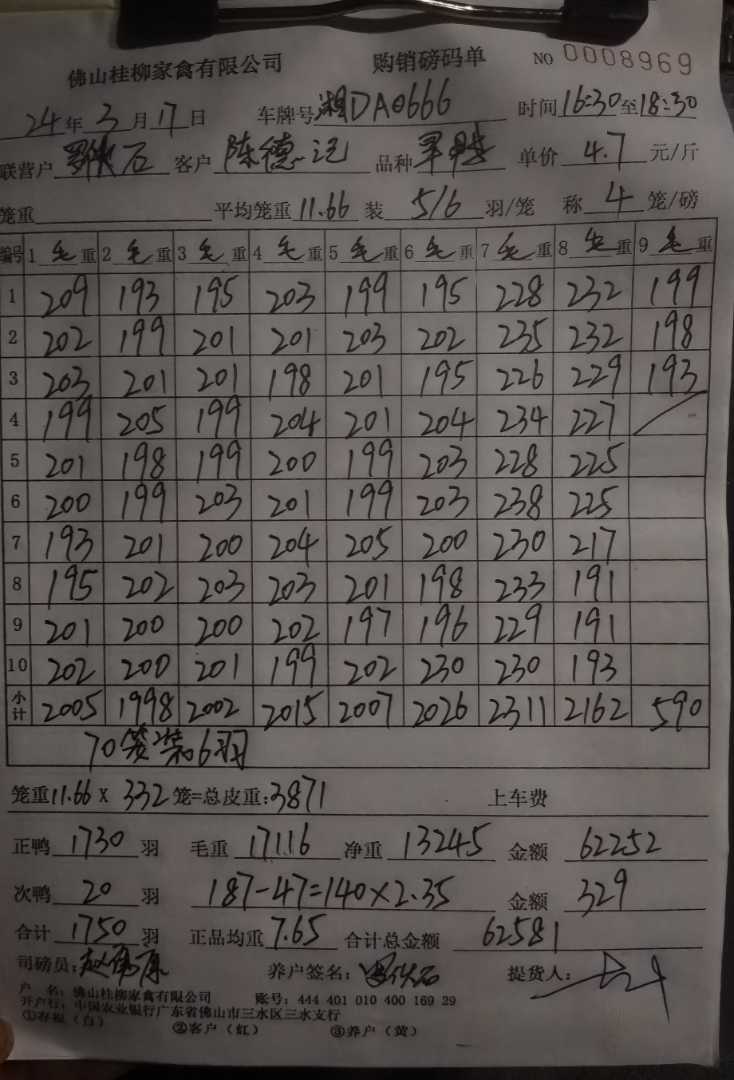 佛山桂柳家禽有限公司 购销磅码单 NO 0008969
24年3月17日 车牌号 湘DA0666 时间16:30至18:30
联营户 客户 陈德记 品种 单价 4.7 元/斤
笼重 平均笼重11.66 装 5/6 羽/笼 称 4 笼/磅
编号 1毛重 2毛重 3毛重 4毛重 5毛重 6毛重 7毛重 8毛重 9毛重
1 209 193 195 203 199 195 228 232 199
2 202 199 201 201 203 202 235 232 198
3 203 201 201 198 201 195 226 229 193
4 199 205 199 204 201 204 234 227
5 201 198 199 200 199 203 228 225
6 200 199 203 201 199 203 238 225
7 193 201 200 204 205 200 230 217
8 195 202 203 203 201 198 233 191
9 201 200 200 202 197 196 229 191
10 202 200 201 199 202 230 230 193
小计 2005 1998 2002 2015 2007 2026 2311 2162 590
70笼装6羽
笼重11.66×332笼=总皮重:3871 上车费
正鸭1730羽 毛重17116 净重13245 金额62252
次鸭20羽 187-47=140×2.35 金额329
合计1750羽 正品均重7.65 合计总金额62581
司磅员: 养户签名: 提货人:
户 名: 佛山桂柳家禽有限公司 账号: 444 401 010 400 169 29
开户行: 中国农业银行广东省佛山市三水区三水支行
①存根（白） ②客户（红） ③养户（黄）